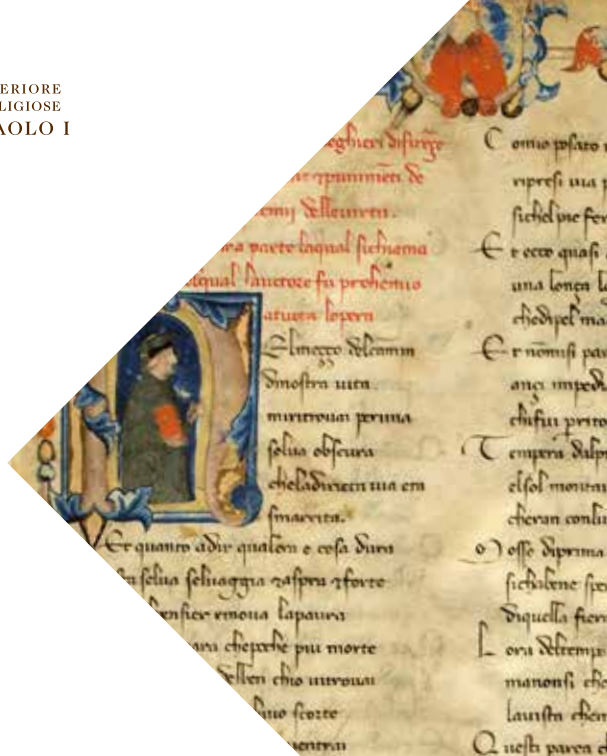 ERIORE
LIGIOSE
AOLO I
eghieri
punimēti de
delleuirtu.
parte laqual sichiama
lauctore fa prohemio
atucta lopera
Elmeçço delcamin
dinostra uita
miritrouai peruna
selua obscura
cheladiricta uia era
smarrita.
Et quanto adir qualera e cosa dura
selua seluaggia 7aspra 7forte
pensier rinoua lapaura
amara chepoche piu morte
delben chio uitrouai
scorte
ientrai
Comio posato
ripresi uia p
sichel pie fer
Et ecco quasi
una lonça le
chedipel ma
Et nōmisi par
ançi impedi
chifui
Tempera dalp
elsol montau
cheran conlu
Mosse diprima
sichabene spe
diquella fiera
Lora deltemp
manonsi che
lauista chem
Questi parea ch